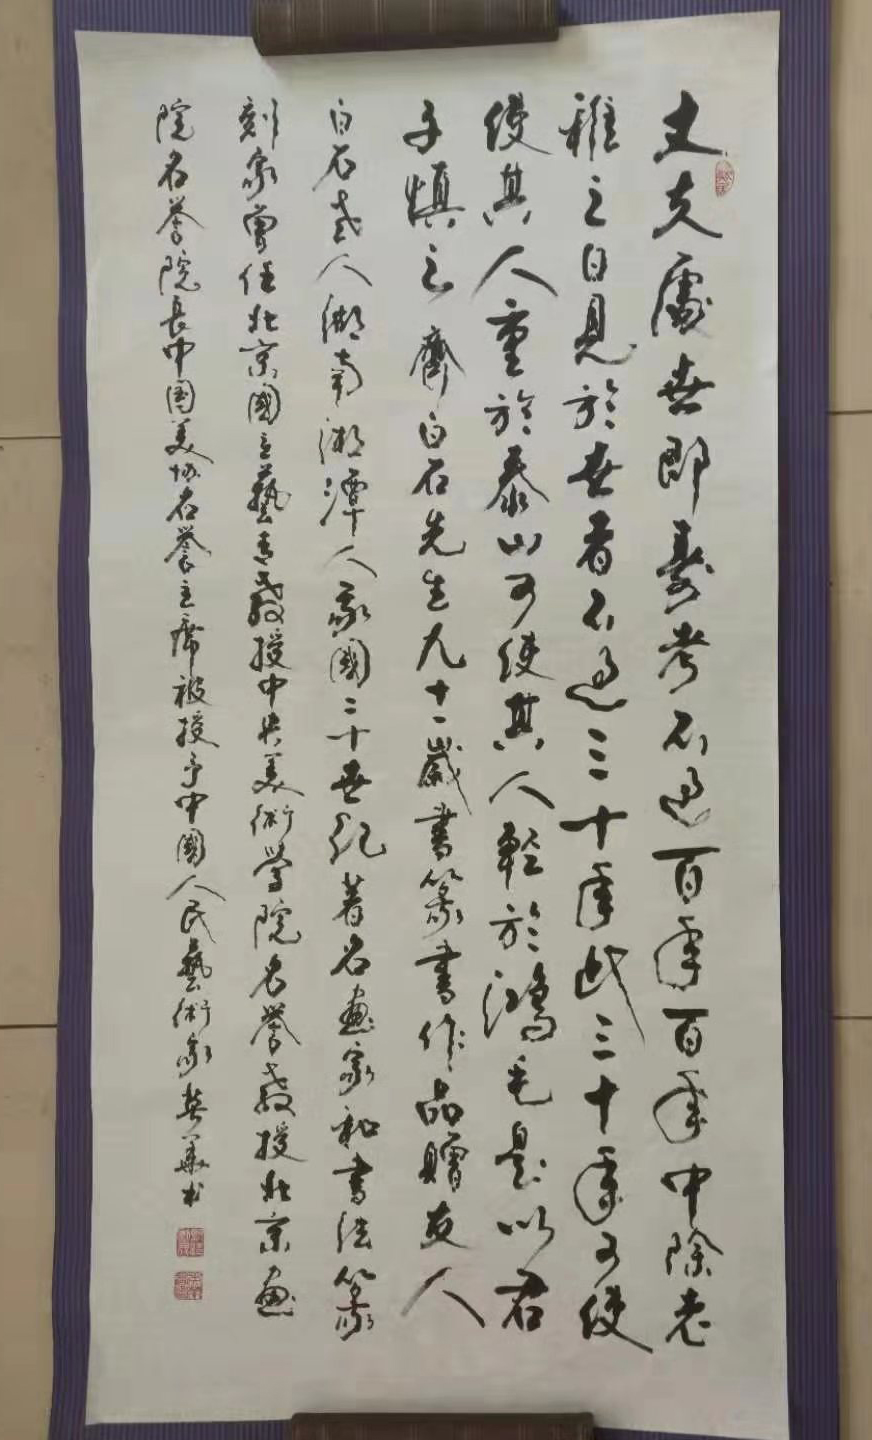 丈夫處世即壽考不過百年百年中除老
稚之日見於世者不過三十年此三十年可使
使其人重於泰山可使其人輕於鴻毛是以君
子慎之齊白石先生九十一歲書篆書作品贈友人
白石老人湖南湘潭人我國二十世紀著名畫家和書法篆
刻家曾任北京國立藝專教授中央美術學院名譽教授北京畫
院名譽院長中國美協名譽主席被授予中國人民藝術家